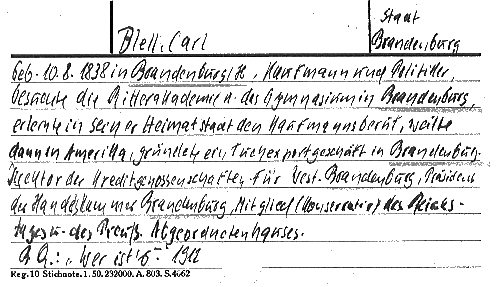 Staat
Blell, Carl
Brandenburg
Geb. 10.8.1838 in Brandenburg/H., Kaufmann und Politiker,
besuchte die Ritterakademie u. das Gymnasium in Brandenburg,
erlernte in seiner Heimatstadt den Kaufmannsberuf, weilte
dann in Amerika, gründete ein Tuchexportgeschäft in Brandenburg.
Direktor der Kreditgenossenschaften für Westbrandenburg, Präsident
der Handelskammer Brandenburg, Mitglied (Konservativ) des Reichs-
tages u. des Preuß. Abgeordnetenhauses.
"Wer ist's" 1912
Reg. 10 Stichnote. 1. 50. 232000. A. 803. S. 4662